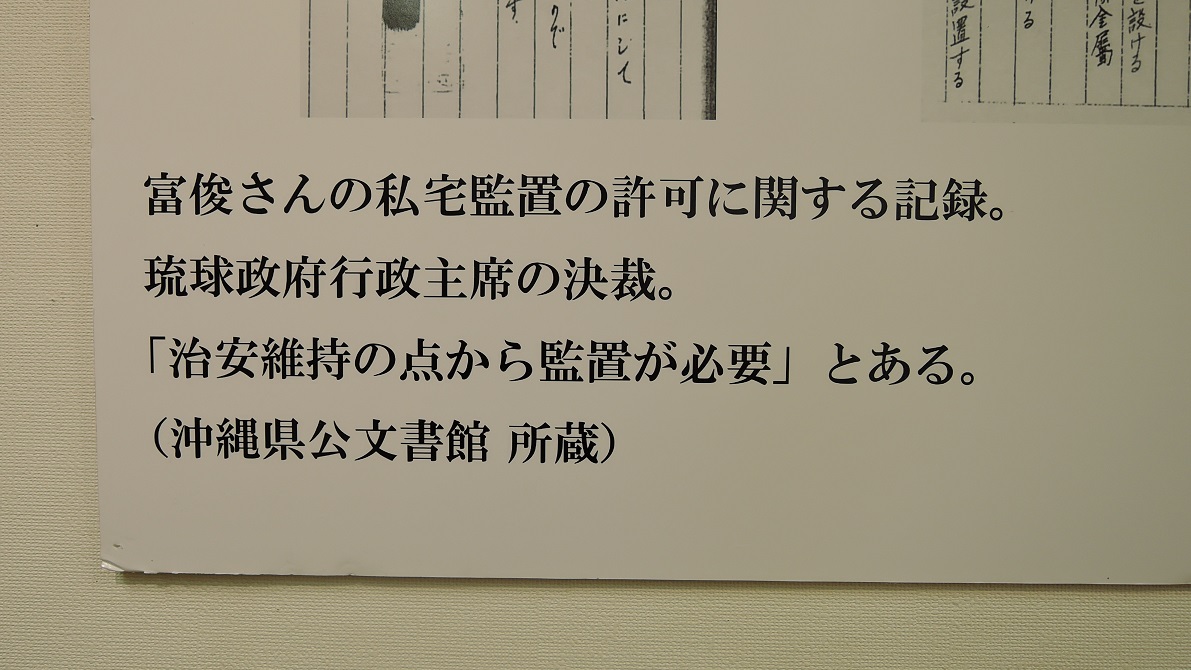 にして
ので
す。
を設ける
金属
る
設置する
富俊さんの私宅監置の許可に関する記録。
琉球政府行政主席の決裁。
「治安維持の点から監置が必要」とある。
（沖縄県公文書館 所蔵）